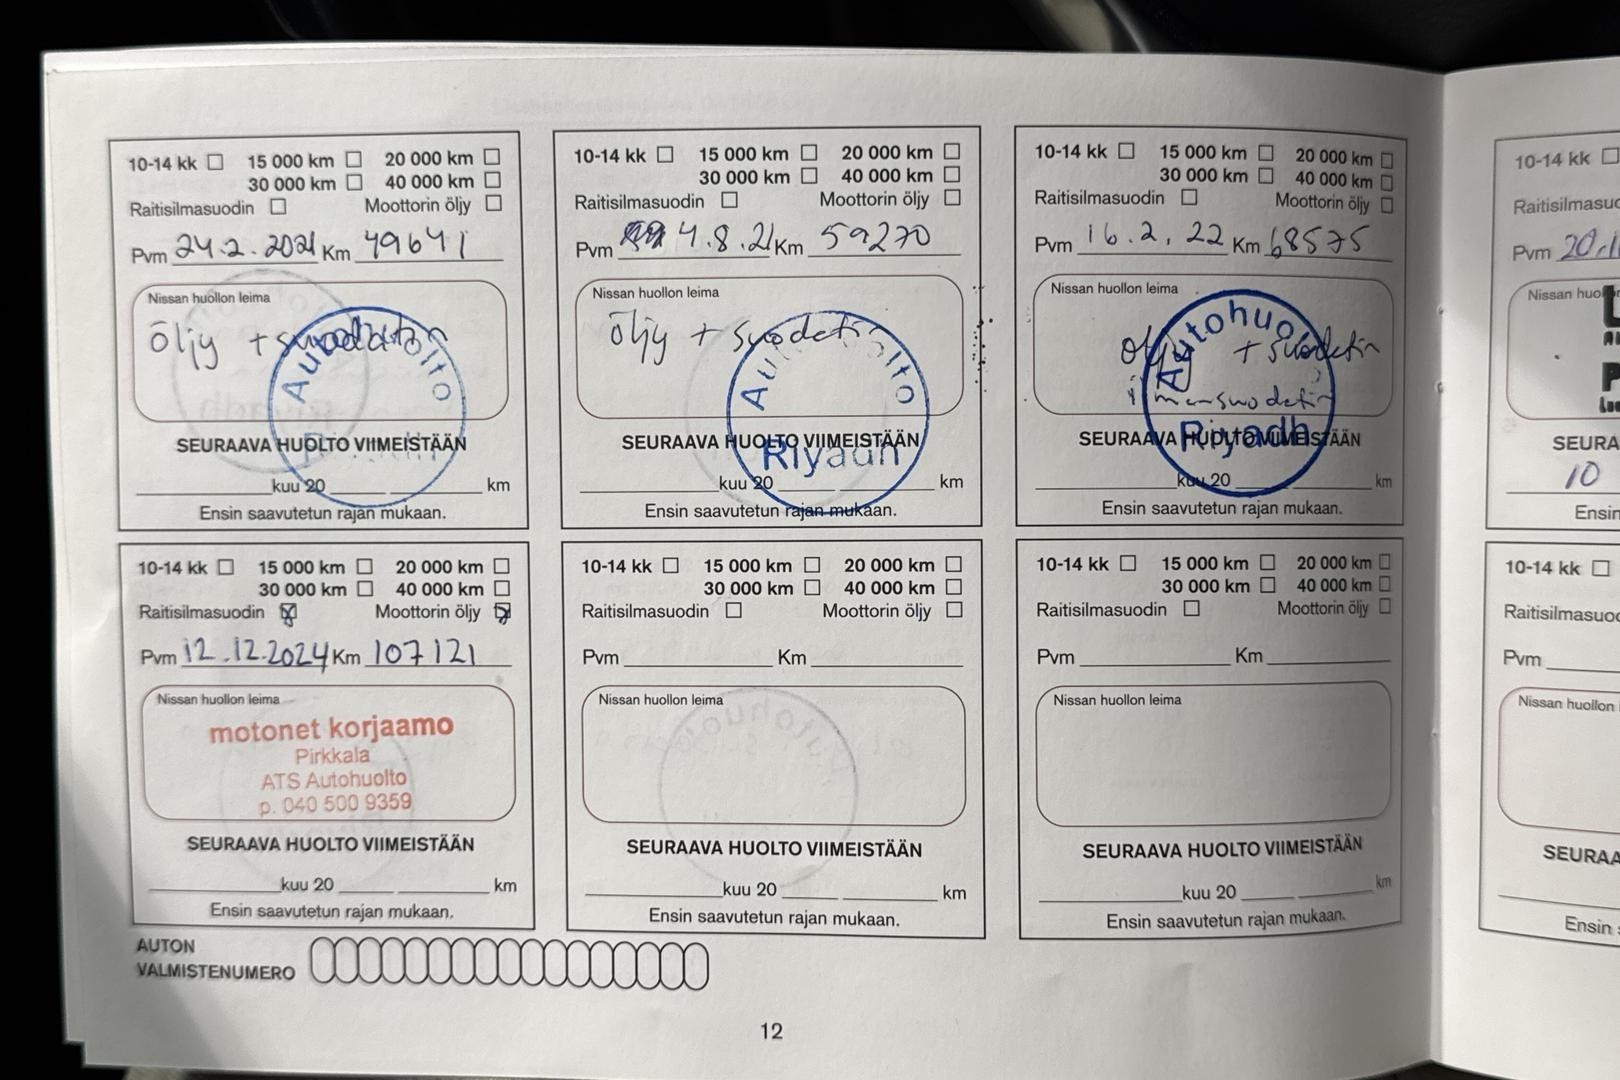 10-14 kk 15 000 km 20 000 km
30 000 km 40 000 km
Raitisilmasuodin Moottorin öljy
Pvm 24.2.2021 Km 49641
Nissan huollon leima
öljy + suodatin
Autohuolto
SEURAAVA HUOLTO VIIMEISTÄÄN
kuu 20 km
Ensin saavutetun rajan mukaan.
10-14 kk 15 000 km 20 000 km
30 000 km 40 000 km
Raitisilmasuodin Moottorin öljy
Pvm 4.8.21 Km 59270
Nissan huollon leima
öljy + suodatin
Autohuolto
Riyadh
SEURAAVA HUOLTO VIIMEISTÄÄN
kuu 20 km
Ensin saavutetun rajan mukaan.
10-14 kk 15 000 km 20 000 km
30 000 km 40 000 km
Raitisilmasuodin Moottorin öljy
Pvm 16.2.22 Km 68575
Nissan huollon leima
öljy + suodatin
ilmansuodatin
Autohuolto
Riyadh
SEURAAVA HUOLTO VIIMEISTÄÄN
kuu 20 km
Ensin saavutetun rajan mukaan.
10-14 kk
Raitisilmasuo
Pvm 20.1
Nissan huo
SEURA
10
Ensin
10-14 kk 15 000 km 20 000 km
30 000 km 40 000 km
Raitisilmasuodin Moottorin öljy
Pvm 12.12.2024 Km 107121
Nissan huollon leima
motonet korjaamo
Pirkkala
ATS Autohuolto
p. 040 500 9359
SEURAAVA HUOLTO VIIMEISTÄÄN
kuu 20 km
Ensin saavutetun rajan mukaan.
10-14 kk 15 000 km 20 000 km
30 000 km 40 000 km
Raitisilmasuodin Moottorin öljy
Pvm Km
Nissan huollon leima
SEURAAVA HUOLTO VIIMEISTÄÄN
kuu 20 km
Ensin saavutetun rajan mukaan.
10-14 kk 15 000 km 20 000 km
30 000 km 40 000 km
Raitisilmasuodin Moottorin öljy
Pvm Km
Nissan huollon leima
SEURAAVA HUOLTO VIIMEISTÄÄN
kuu 20 km
Ensin saavutetun rajan mukaan.
10-14 kk
Raitisilmasuo
Pvm
Nissan huollon
SEURAA
Ensin
AUTON
VALMISTENUMERO
12